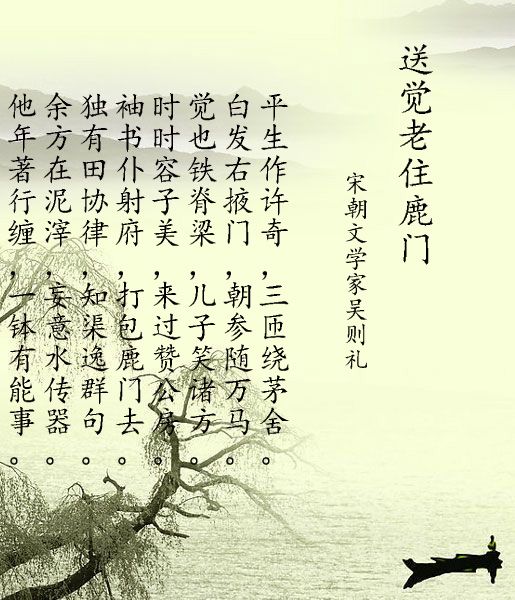 送觉老住鹿门
宋朝文学家吴则礼
平生作许奇，三匝绕茅舍。
白发右掖门，朝参随万马。
觉也铁脊梁，儿子笑诸方。
时时容子美，来过赞公房。
袖书仆射府，打包鹿门去。
独有田协律，知渠逸群句。
余方在泥滓，妄意水传器。
他年著行缠，一钵有能事。